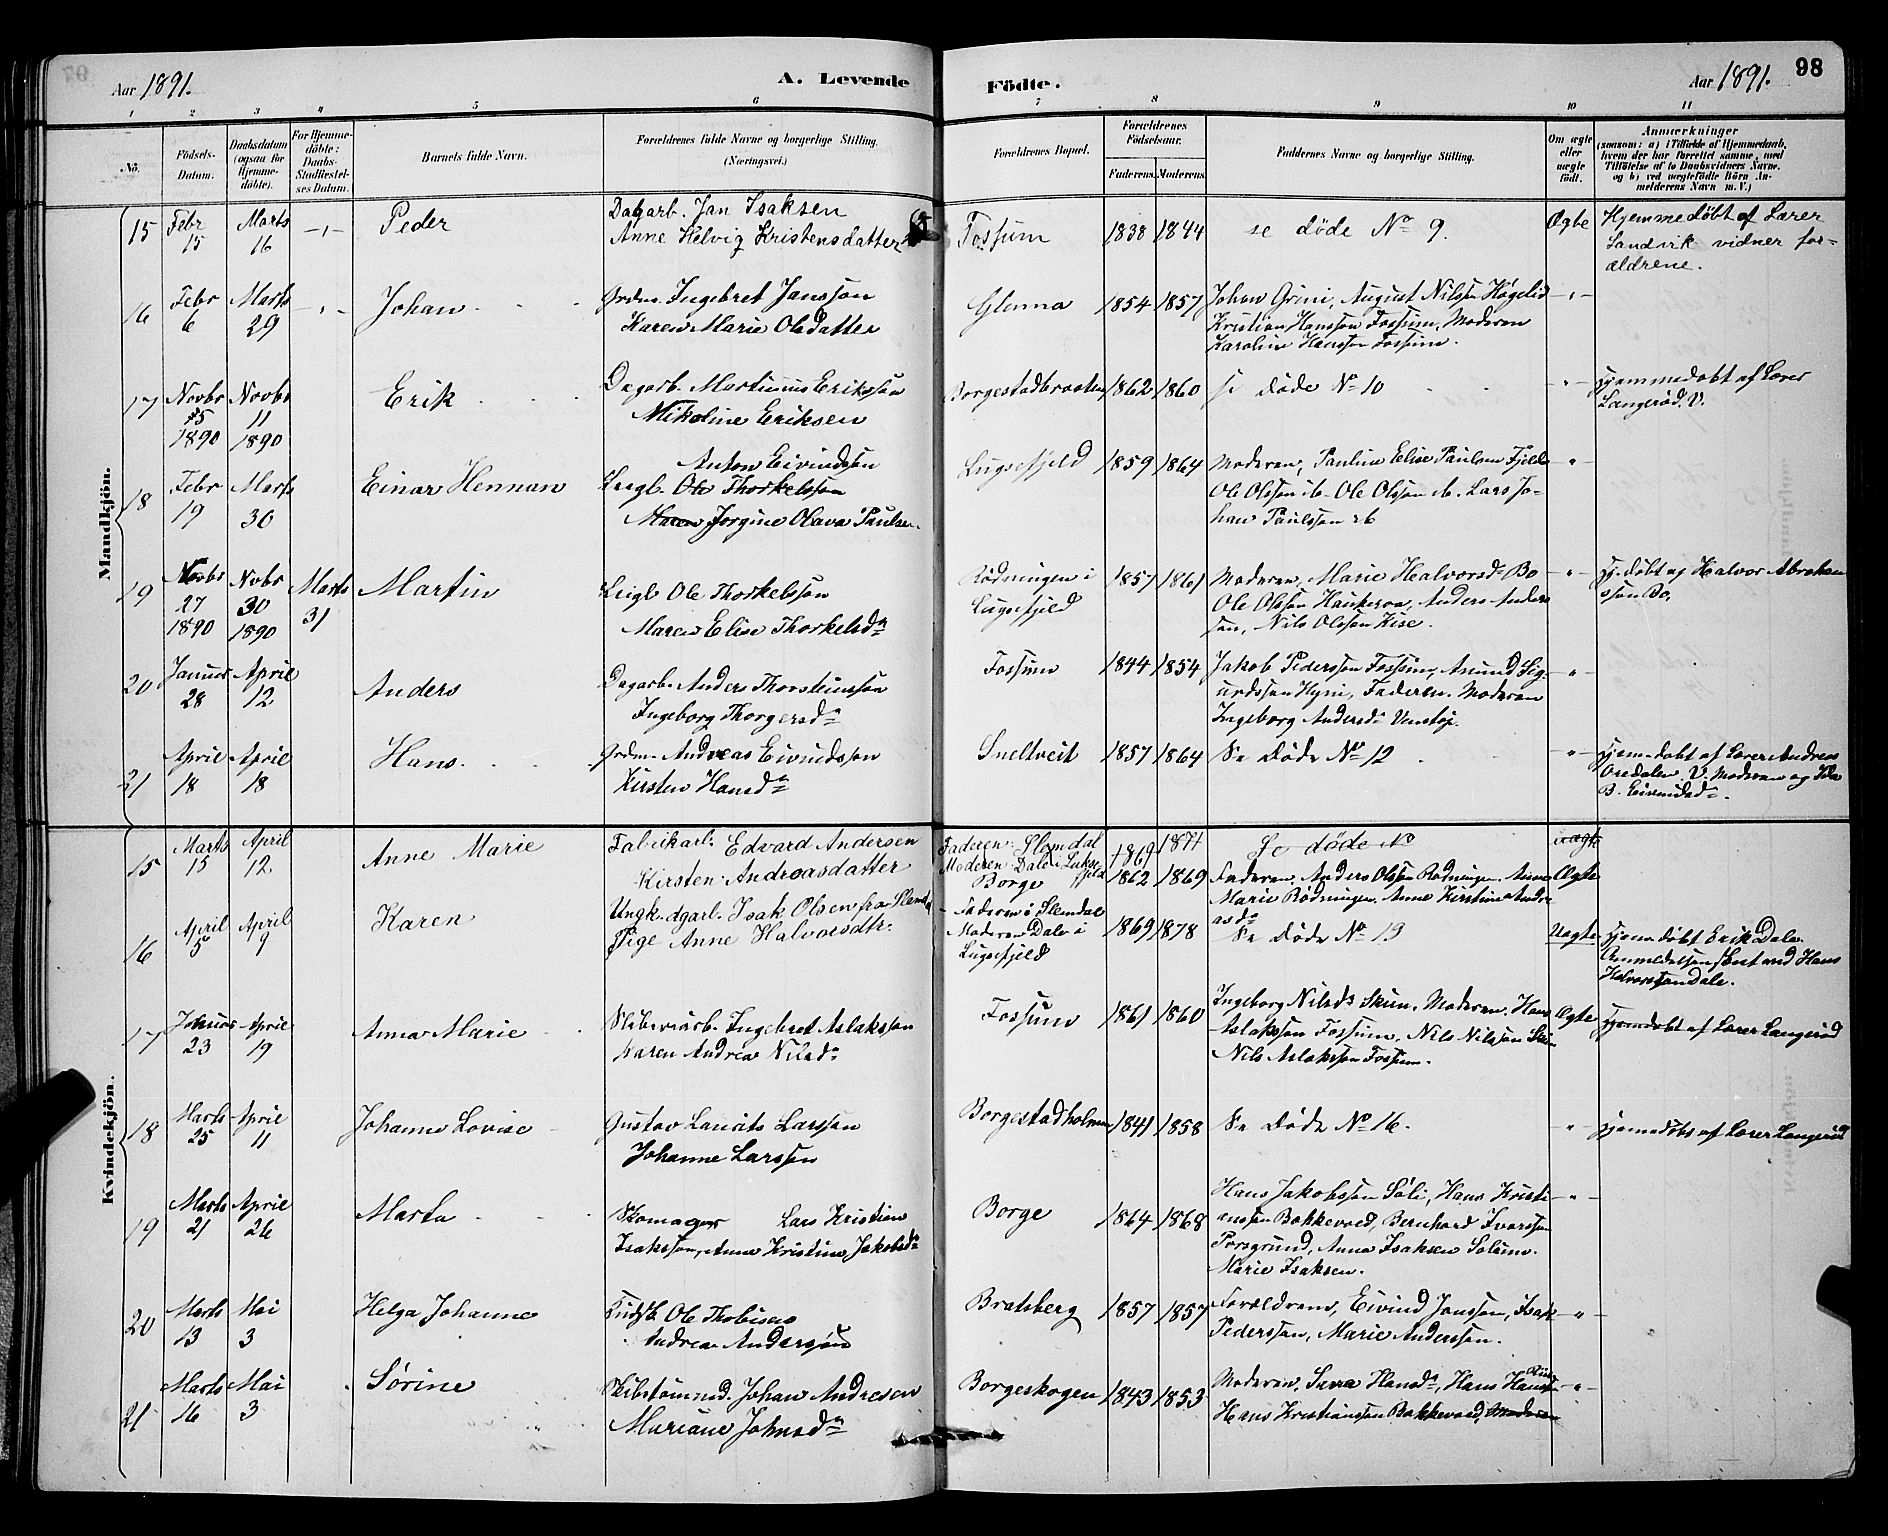 Aar 1891.
A. Levende
Födte.
Aar 1891.
98
1 2 3 4 5 6 7 8 9 10 11
No.
Födsels-
Datum.
Daabsdatum
(ogsaa for
Hjemme-
döbte).
For Hjemme-
döbte:
Daabs-
Stadfæstel-
ses Datum.
Barnets fulde Navn.
Forældrenes fulde Navne og borgerlige Stilling.
(Næringsvei.)
Forældrenes Bopæl.
Forældrenes
Födselsaar.
Faderens. Moderens.
Faddernes Navne og borgerlige Stilling.
Om ægte
eller
uægte
födt.
Anmærkninger
(saasom: a) i Tilfælde af Hjemmedaab,
hvem der har forrettet samme, med
Tilföielse af to Daabsvidners Navne.
og b) ved uægtefödte Börn An-
melderens Navn m. V.)
Mandkjön.
15 Febr 15 Marts 16 -"- Peder
Dagarb. Jan Isaksen
Anne Helvig Kristensdatter
Fossum 1838 1844 se døde No 9. Ægte
Hjemmedøbt af Lærer
Sandvik vidner for-
ældrene.
16 Febr 6 Marts 29 -"- Johan
Grdm. Ingebret Janssøn
Karen Marie Olsdatter
Glenna 1854 1857
Johan Grini, August Nilssen Høgelid -"-
Kristian Hanssøn Fossum, Moderen
Karoline Hanssøn Fossum.
17 Novbr 5 1890 Novbr 11 1890 Erik
Dagarb. Martinius Erikssøn
Mikoline Eriksen
Borgestadbraaten 1862 1860 se døde No 10 "
Hjemmedøbt af Lærer
Langerød. V.
18 Febr 19 Marts 30 Einar Hennan
Anton Eivindssøn
Leigl. Ole Thorkelssøn
Maren Jorgine Olava Paulsen.
Lugsefjeld 1859 1864
Moderen, Pauline Elise Paulsen Fjeld -"-
Ole Olssøn ib. Ole Olssøn ib. Lars Jo-
han Paulssøn ib
19 Novbr 27 1890 Novbr 30 1890 Marts 31 Martin
Leigl. Ole Thorkelssøn
Maren Elise Thorkelsdr
Rødningen i
Lugsefjeld
1857 1861
Moderen, Marie Halvorsdr Bo -"-
Ole Olssøn Haukeroa, Anders Anders
søn, Nils Olssøn Kise.
Hj. døbt af Halvor Abraham
ssøn Bo.
20 Januar 28 April 12 Anders
Dagarb. Anders Thorsteinssøn
Ingeborg Thorgersdr
Fossum 1844 1854
Jakob Pederssøn Fossum, Amund Sig- "
urdssøn Hyni, Faderen. Moderen
Ingeborg Andersdr Venstøp.
21 April 18 April 18 Hans
Grdm. Andreas Eivindssøn
Kirsten Hansdr
Sneltveit 1857 1864 Se Døde No 12 -"-
Hjemdøbt af Lærer Andreas
Oredalen. V. Moderen og
B. Eivindsdr.
Kvindekjön.
15 Marts 15 April 12 Anne Marie
Fabrikarb. Edvard Andersen
Kirsten Andreasdatter
Faderen: Slemdal
Moderen: Dale i Lukse
fjeld
Borge
1869 1871 Se døde No uægte
1862 1869 Faderen, Anders Olssøn Rødningen, Anne Ægte
Marie Rødningen, Anne Kirstine Andre
asdr
16 April 5 April 9 Karen
Ungk. dgarb. Isak Olsen fra Slemdal
Pige Anne Halvorsdtr.
Faderen i Slemdal
Moderen Dale i
Lugsefjeld
1869 1878 Se Døde No 13 Uægte
Hjemdøbt Erik Dale.
Anmeldelsen
Halvorssøn Dale.
17 Januar 23 April 19 Anna Marie
Sliberiarb. Ingebret Aslakssøn
Karen Andrea Nilsdr
Fossum 1861 1860
Ingeborg Nilsdr Skien, Moderen, Hans Ægte
Aslakssøn Fossum, Nils Nilssøn
Nils Aslakssøn Fossum.
Hjemdøbt af Lærer Langerød
18 Marts 25 April 11 Johanne Lovise
Gustav Laurits Larssøn
Johanne Larssøn
Borgestadholmen 1841 1858 Se Døde No 16. "
Hjemmedøbt af Lærer Langerød
19 Marts 21 April 26 Marta
Skomager Lars Kristian
Isakssøn, Anne Kristine Jakobsdr
Borge 1864 1868
Hans Jakobssøn Søli, Hans Kristi -"-
anssøn Bakkevold, Bernhard Ivarssøn
Porsgrund, Anna Isaksen Solum.
Marie Isaksen.
20 Marts 13 Mai 3 Helga Johanne
Ole Thobias
Andrea Anderssøn
Bratsberg 1857 1857
Forældrene, Eivind Janssøn, Isak -"-
Pederssøn, Marie Anderssøn.
21 Marts 16 Mai 3 Sørine
Skibstømmd. Johan Andresen
Mariane Johnsdr
Borgeskogen 1843 1853
Moderen, Sara Hansdr, Hans Hanssøn -"-
Hans Kristianssøn Bakkevold, Moderen